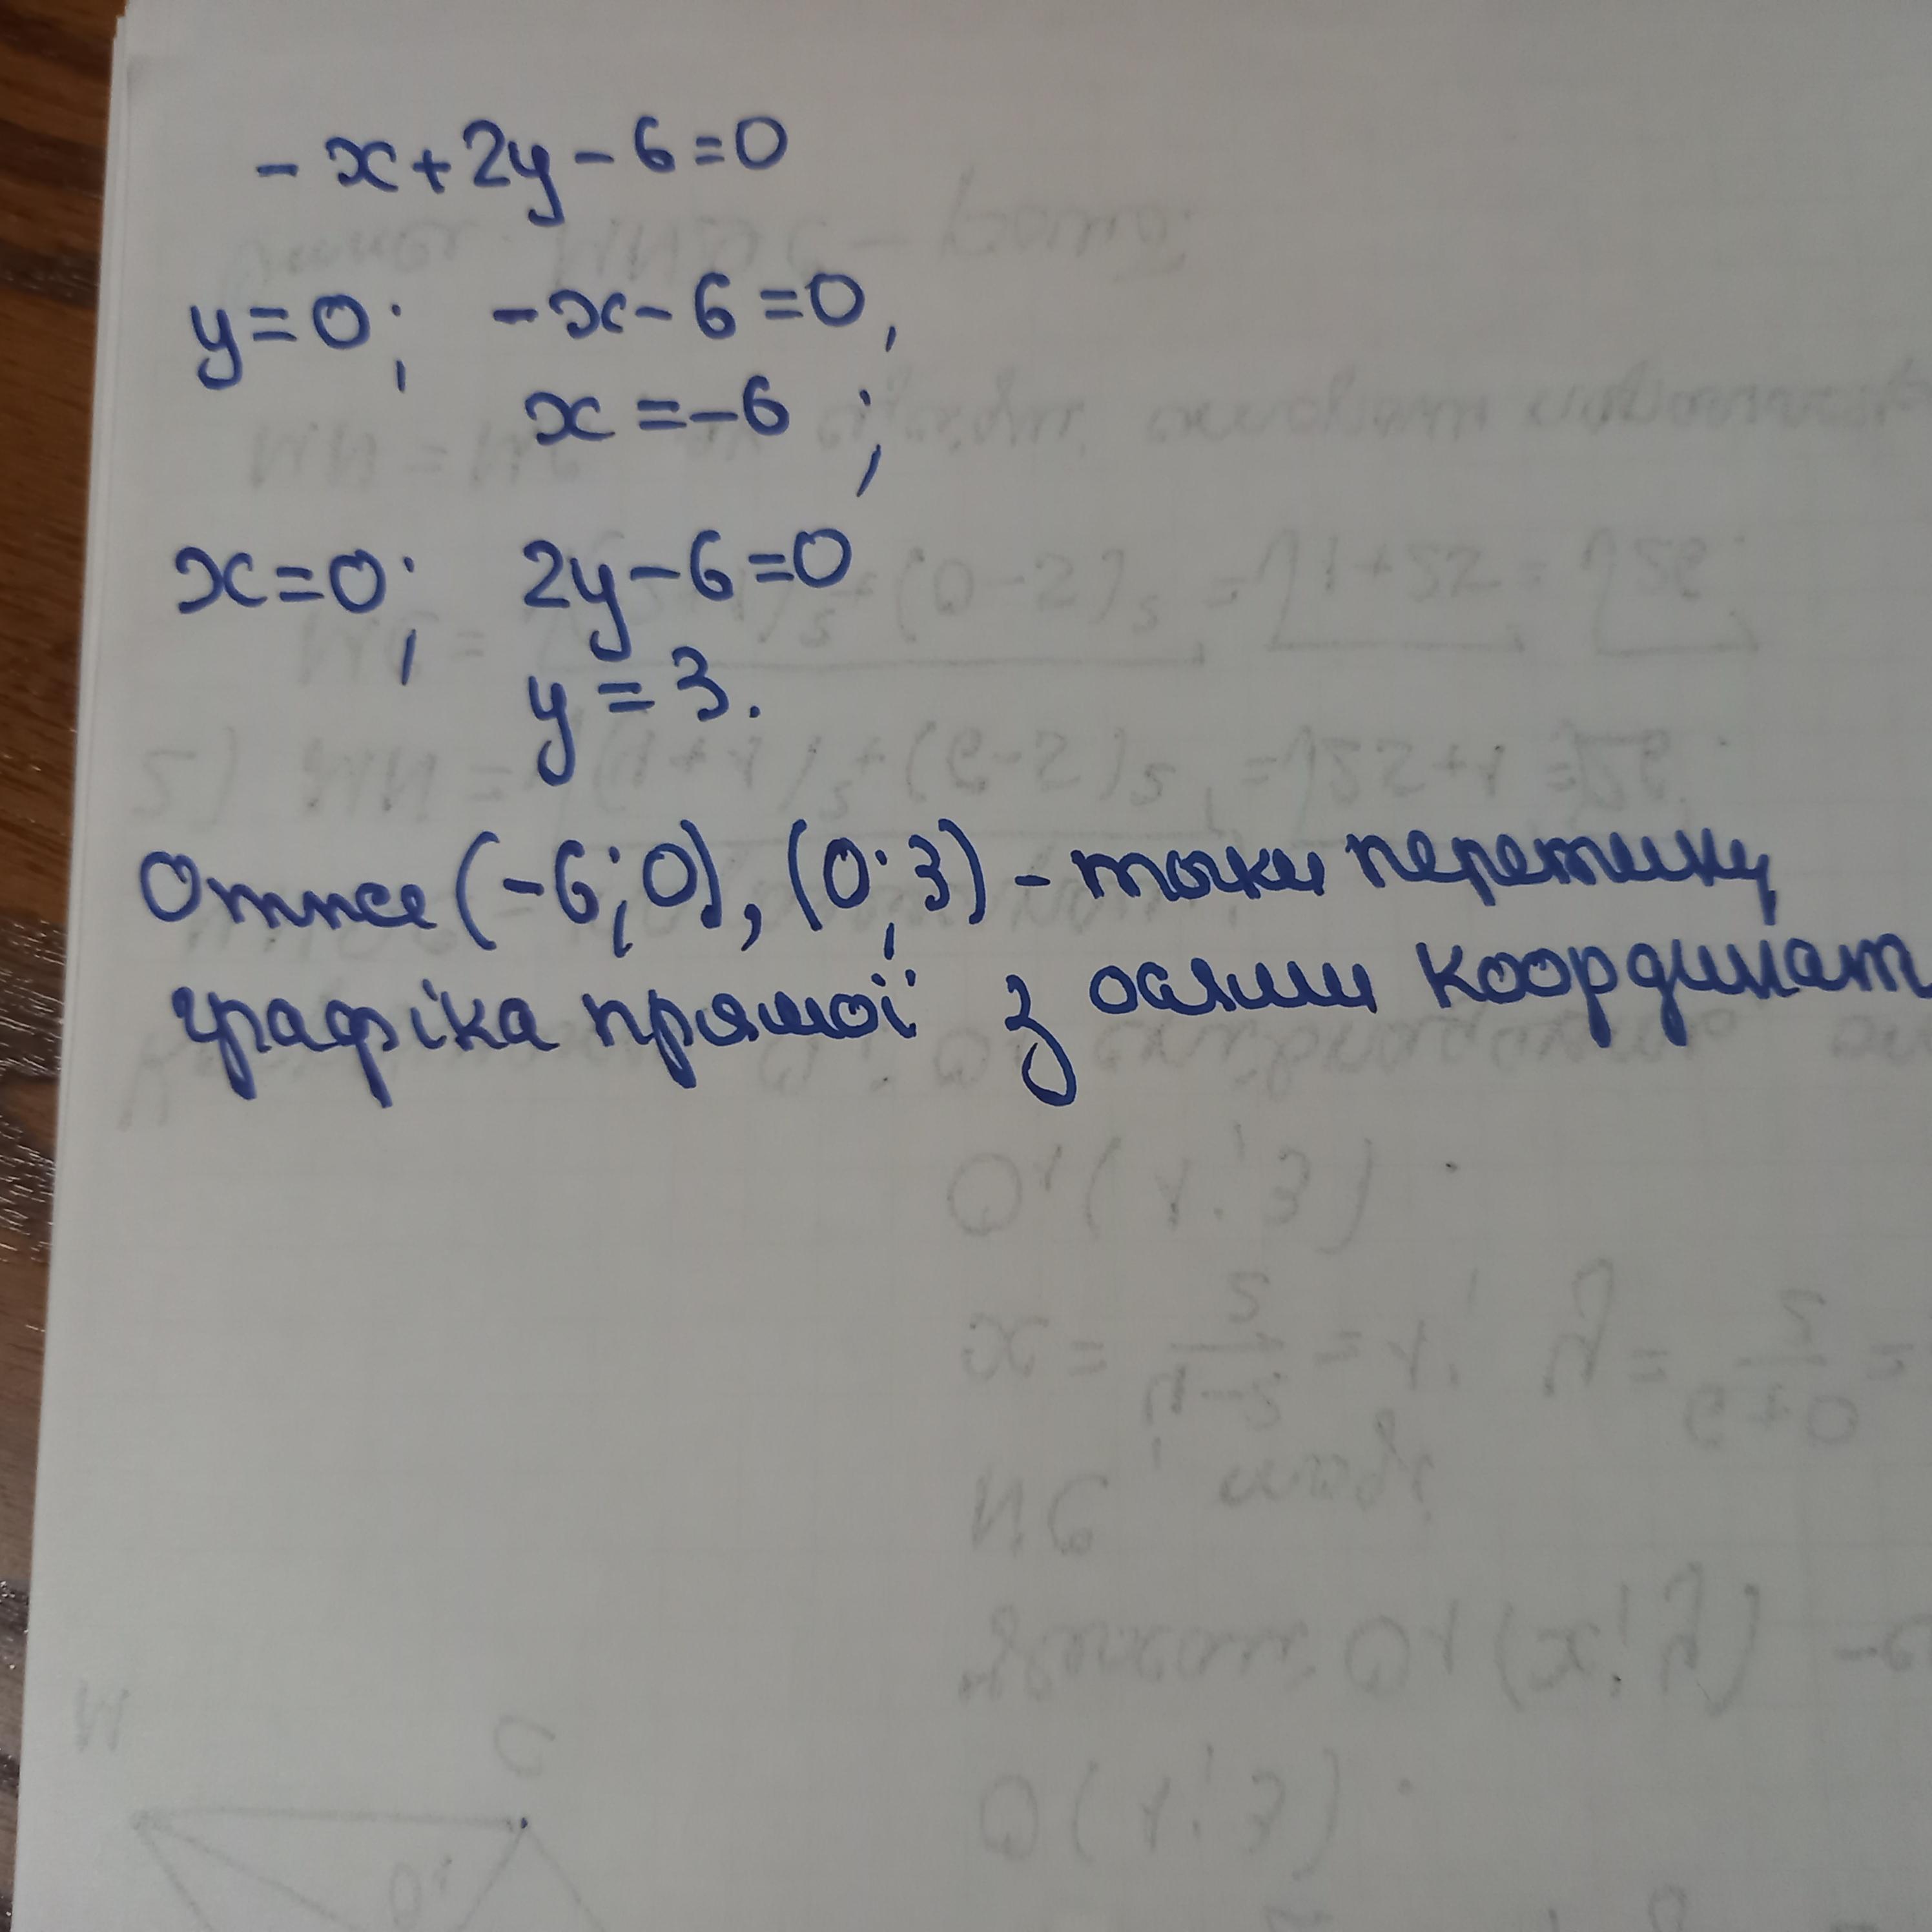 -x+2y-6=0
y=0; -x-6=0,
x=-6;
x=0; 2y-6=0
y=3.
Отже (-6;0), (0;3) - точки перетину
графіка прямої з осями координат